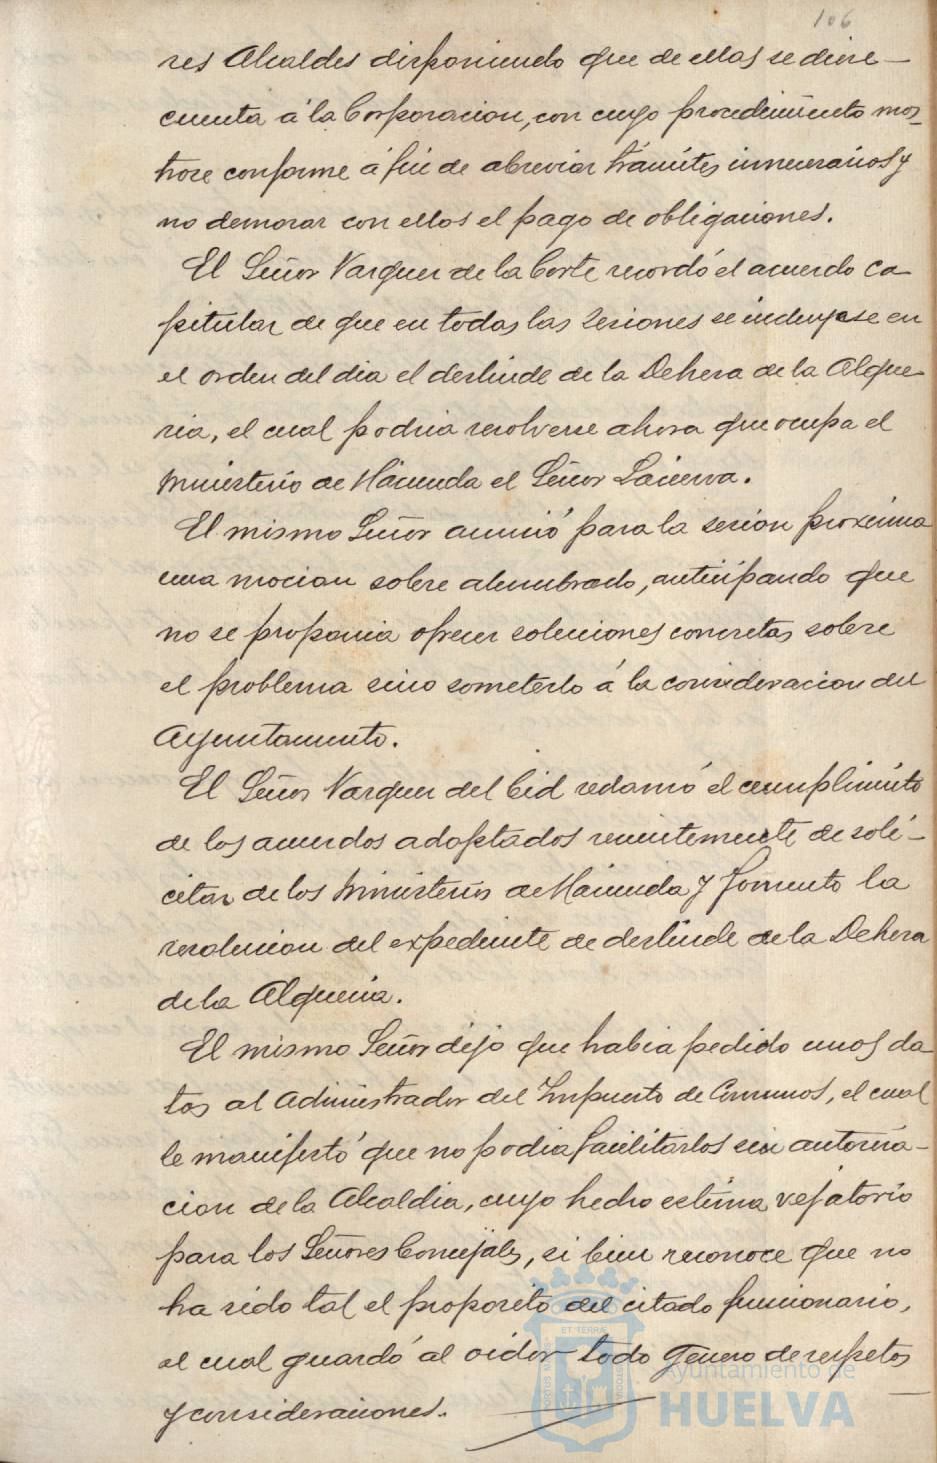 106
res Alcaldes disponiendo que de ellas se diere
cuenta á la Corporacion, con cuyo procedimiento mos-
trose conforme á fin de abreviar trámites innecesarios y
no demorar con ellos el pago de obligaciones.
El Señor Vazquez de la Corte recordó el acuerdo ca
pitular de que en todas las sesiones se incluyese en
el orden del dia el deslinde de la Dehesa de la Alque-
ria, el cual podria resolverse ahora que ocupa el
Ministerio de Hacienda el Señor Lacierva.
El mismo Señor anunció para la sesion proxima
una mocion sobre alumbrado, anticipando que
no se proponia ofrecer soluciones concretas sobre
el problema sino someterlo á la consideracion del
Ayuntamiento.
El Señor Vazquez del Cid reclamó el cumplimiento
de los acuerdos adoptados recientemente de soli-
citar de los Ministerios de Hacienda y Fomento la
resolucion del expediente de deslinde de la Dehesa
de la Alqueria.
El mismo Señor dijo que habia pedido unos da
tos al Administrador del Impuesto de Consumos, el cual
le manifestó que no podia facilitarlos sin autoriza-
cion de la Alcaldia, cuyo hecho estima vejatorio
para los Señores Concejales, si bien reconoce que no
ha sido tal el proposito del citado funcionario,
el cual guardó al oidor todo genero de respetos
y consideraciones.
Ayuntamiento de
HUELVA